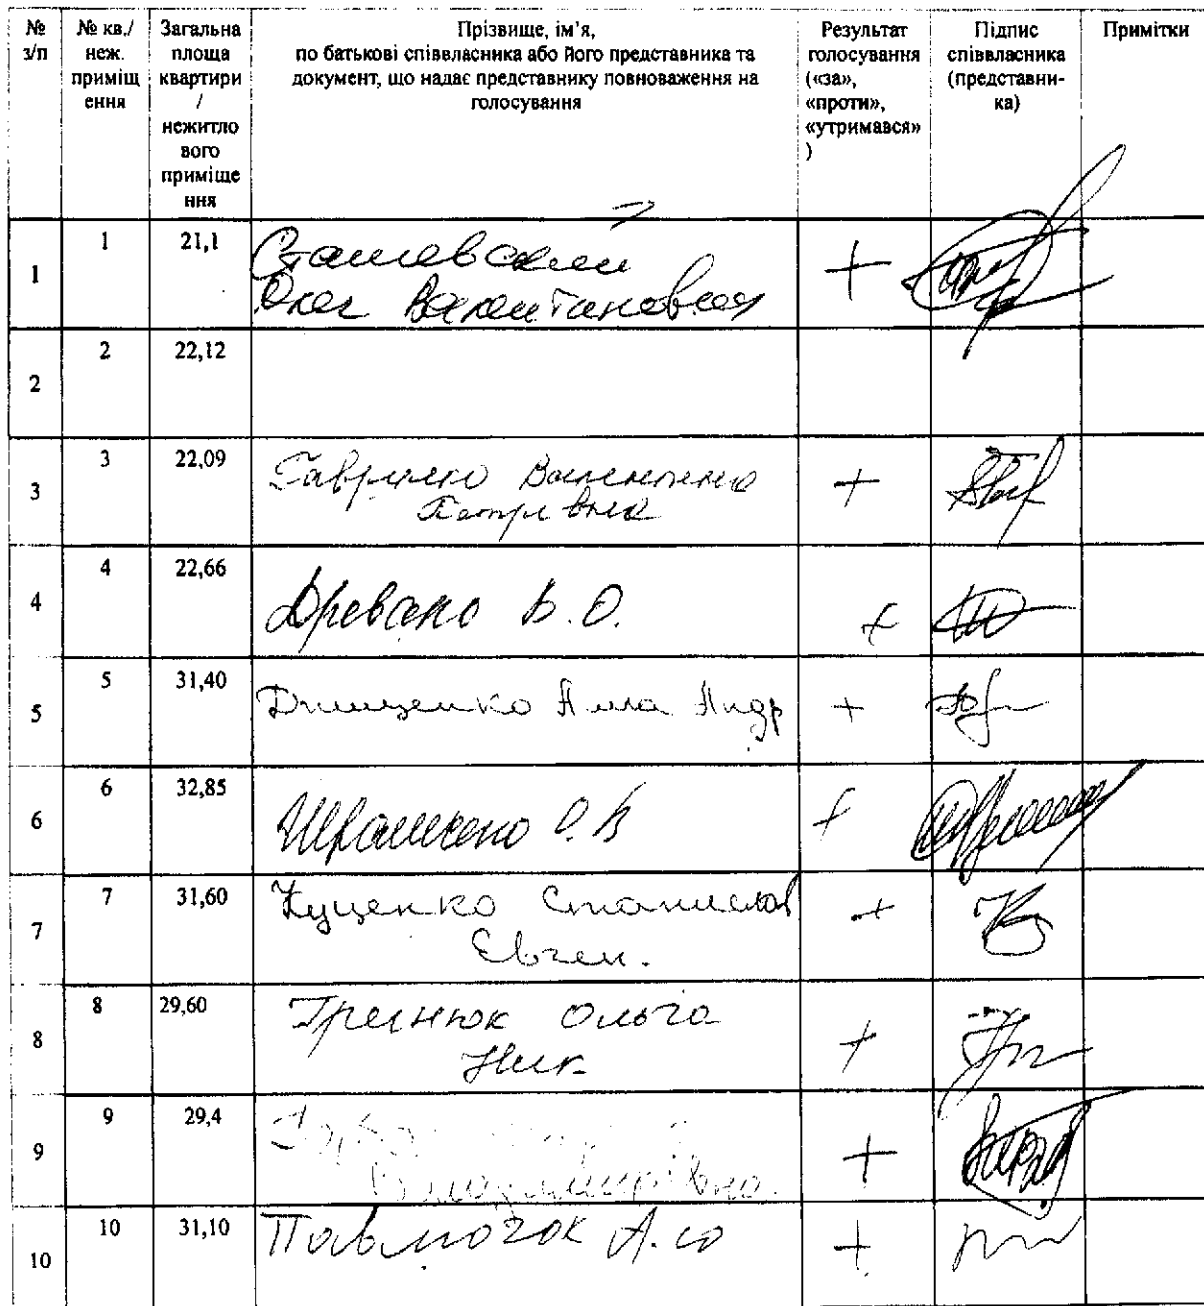 № з/п
№ кв./ неж. приміщ ення
Загальна площа квартири / нежитло вого приміще ння
Прізвище, ім’я, по батькові співвласника або його представника та документ, що надає представнику повноваження на голосування
Результат голосування («за», «проти», «утримався» )
Підпис співвласника (представни- ка)
Примітки
1 1 21,1 Сташевский +
Олег
2 2 22,12
3 3 22,09 Гаврилко Валентина +
Петрівна
4 4 22,66 В.О. +
5 5 31,40 Алла Андр +
6 6 32,85 О.В +
7 7 31,60 Куценко Станислав +
Евген.
8 8 29,60 Ольга +
Ник
9 9 29,4 +
10 10 31,10 А.Ю +